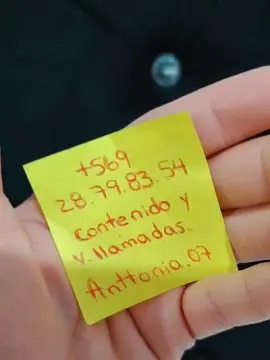 +569
28.79.83.54
Contenido y
V. llamadas.
Anttonia.07